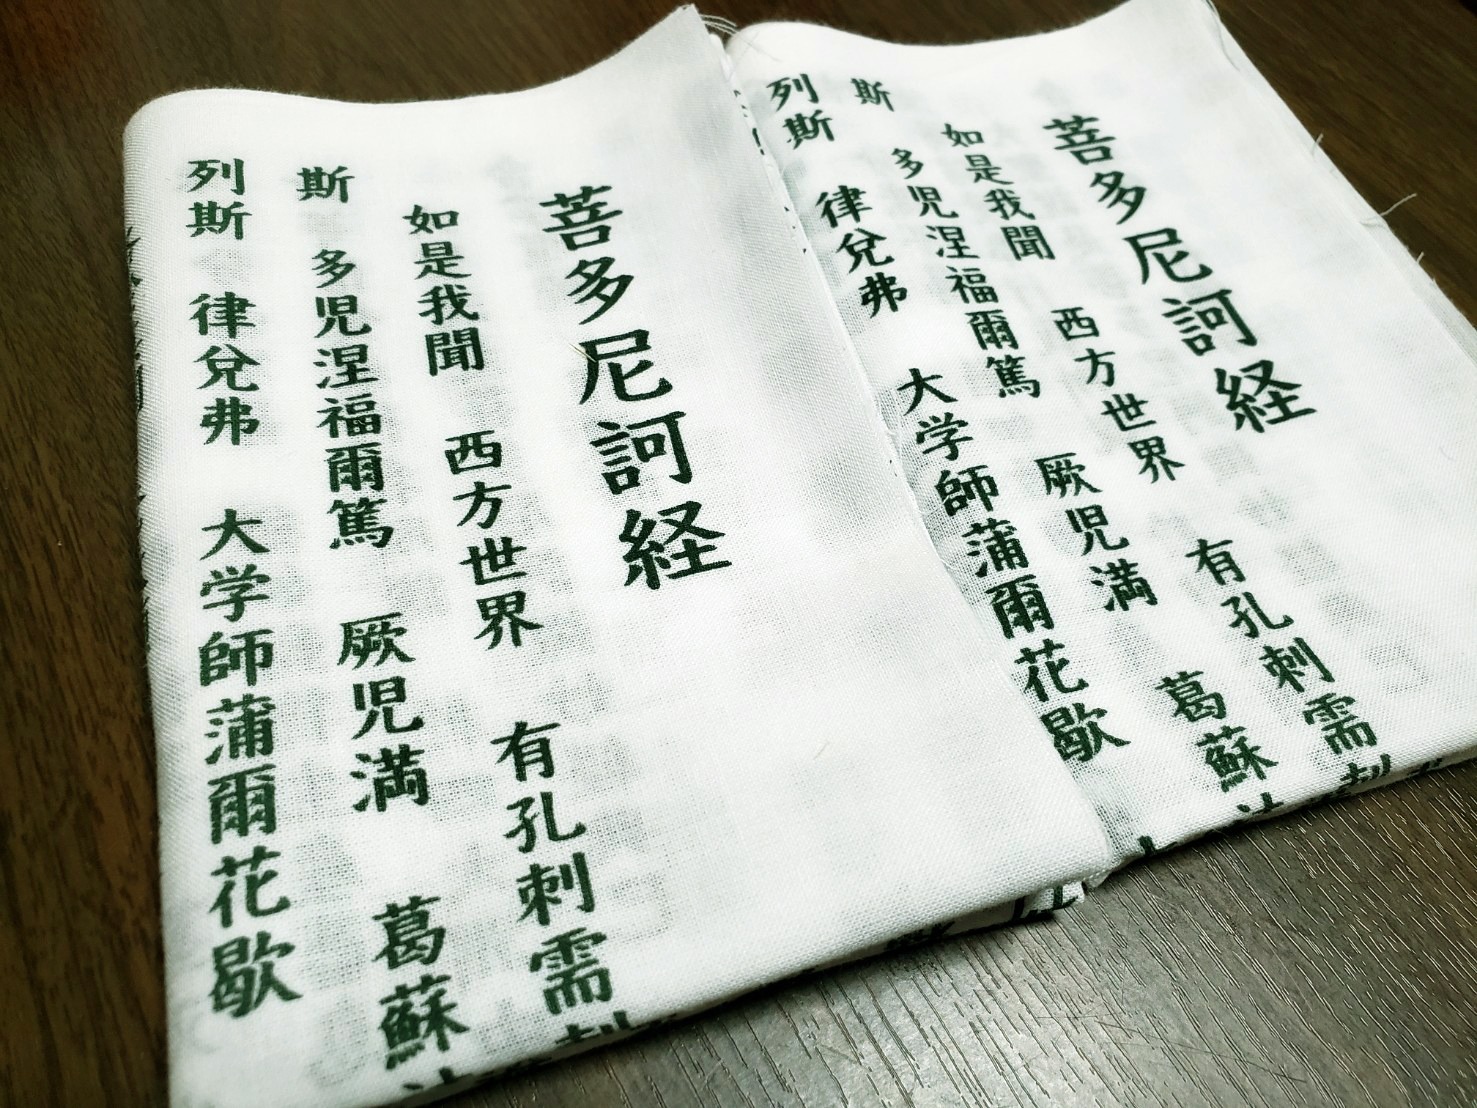 菩多尼訶経
如是我聞 西方世界 有孔刺需
斯 多児涅福爾篤 厥児満 葛蘇
列斯 律兌弗 大学師蒲爾花歇
菩多尼訶経
如是我聞 西方世界 有孔刺需
斯 多児涅福爾篤 厥児満 葛蘇
列斯 律兌弗 大学師蒲爾花歇